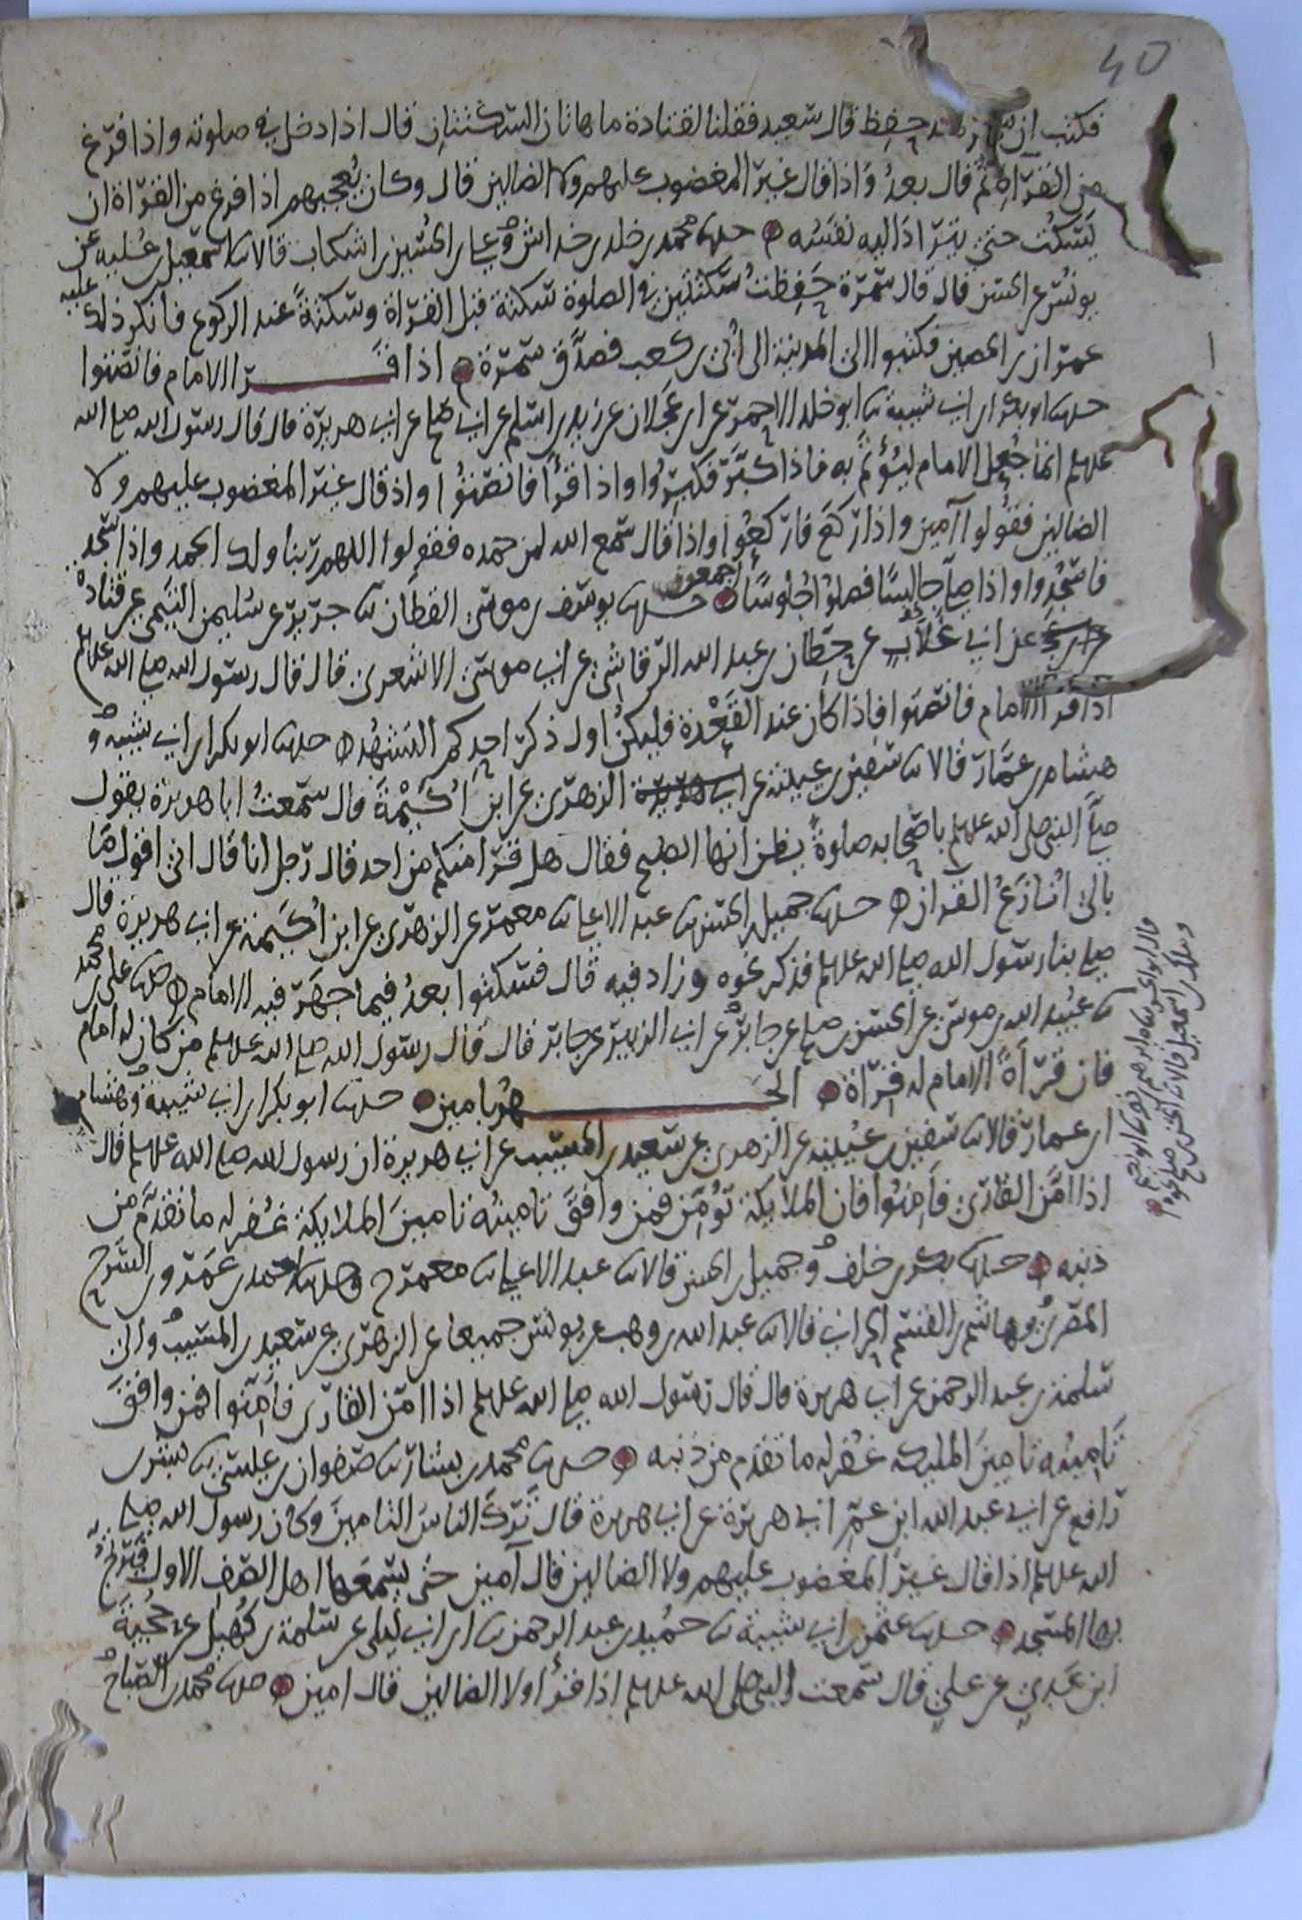 40
فكتب ان سمرة قد حفظ قال سعيد فقلنا لقتادة ما هاتان السكتتان قال اذا دخل في صلوته واذا فرغ
من القراة ثم قال بعد واذا قال غير المغضوب عليهم ولا الضالين قال وكان يعجبهم اذا فرغ من القراة ان
يسكت حتى يتراد اليه نفسه حدثنا محمد بن خلد بن خداش وعلي بن الحسين بن اشكاب قالا ثنا اسمعيل بن علية عن
يونس عن الحسن قال قال سمرة حفظت سكتتين في الصلوة سكتة قبل القراة وسكتة عند الركوع فانكر ذلك عليه
عمران بن الحصين فكتبوا الى المدينة الى ابي بن كعب فصدق سمرة اذا قرا الامام فانصتوا
حدثنا ابو بكر بن ابي شيبة ثنا ابو خلد الاحمر عن ابن عجلان عن زيد بن اسلم عن ابي صالح عن ابي هريرة قال قال رسول الله صلى الله
عليه وسلم انما جعل الامام ليؤتم به فاذا كبر فكبروا واذا قرأ فانصتوا واذ قال غير المغضوب عليهم ولا
الضالين فقولوا آمين واذا ركع فاركعوا واذا قال سمع الله لمن حمده فقولوا اللهم ربنا ولك الحمد واذا سجد
فاسجدوا واذا صلى جالسا فصلوا جلوسا اجمعون حدثنا يوسف بن موسى القطان ثنا جرير عن سليمن التيمي عن قتادة
عن ابي غلاب عن حطان بن عبد الله الرقاشي عن ابي موسى الاشعري قال قال رسول الله صلى الله عليه وسلم
اذا قرا الامام فانصتوا فاذا كان عند القعدة فليكن اول ذكر احدكم التشهد حدثنا ابو بكر بن ابي شيبة و
هشام بن عمار قالا ثنا سفين بن عيينة عن ابي هريرة الزهري عن ابن اكيمة قال سمعت ابا هريرة يقول
صلى النبي صلى الله عليه وسلم باصحابه صلوة يظن انها الصبح فقال هل قرا منكم من احد قال رجل انا قال اني اقول ما
بالي انازع القران حدثنا جميل بن الحسن ثنا عبد الاعلى ثنا معمر عن الزهري عن ابن اكيمة عن ابي هريرة قال
صلى بنا رسول الله صلى الله عليه وسلم فذكر نحوه وزاد فيه قال فسكتوا بعد فيما جهر فيه الامام حدثنا علي بن محمد
ثنا عبيد الله بن موسى عن الحسن بن صالح عن جابر عن ابي الزبير عن جابر قال قال رسول الله صلى الله عليه وسلم من كان له امام
فان قراة الامام له قراة الجهر بامين حدثنا ابو بكر بن ابي شيبة وهشام
ابن عمار قالا ثنا سفين بن عيينة عن الزهري عن سعيد بن المسيب عن ابي هريرة ان رسول الله صلى الله عليه وسلم قال
اذا امن القارئ فامنوا فان الملايكة تؤمن فمن وافق تامينه تامين الملايكة غفر له ما تقدم من
ذنبه حدثنا بكر بن خلف وجميل بن الحسن قالا ثنا عبد الاعلى ثنا معمر ح وحدثنا احمد بن عمرو بن السرح
المصري وهاشم بن القسم الحراني قالا ثنا عبد الله بن وهب عن يونس جميعا عن الزهري عن سعيد بن المسيب وابي
سلمة بن عبد الرحمن عن ابي هريرة قال قال رسول الله صلى الله عليه وسلم اذا امن القارئ فامنوا فمن وافق
تامينه تامين الملئكة غفر له ما تقدم من ذنبه حدثنا محمد بن بشار ثنا صفوان بن عيسى ثنا بشر بن
رافع عن ابي عبد الله ابن عم ابي هريرة عن ابي هريرة قال ترك الناس التامين وكان رسول الله صلى
الله عليه وسلم اذا قال غير المغضوب عليهم ولا الضالين قال آمين حتى يسمعها اهل الصف الاول فيرتج
بها المسجد حدثنا عثمن بن ابي شيبة ثنا حميد بن عبد الرحمن ثنا ابن ابي ليلى عن سلمة بن كهيل عن حجية
ابن عدي عن علي قال سمعت النبي صلى الله عليه وسلم اذا قرأ ولا الضالين قال امين حدثنا محمد بن الصباح و